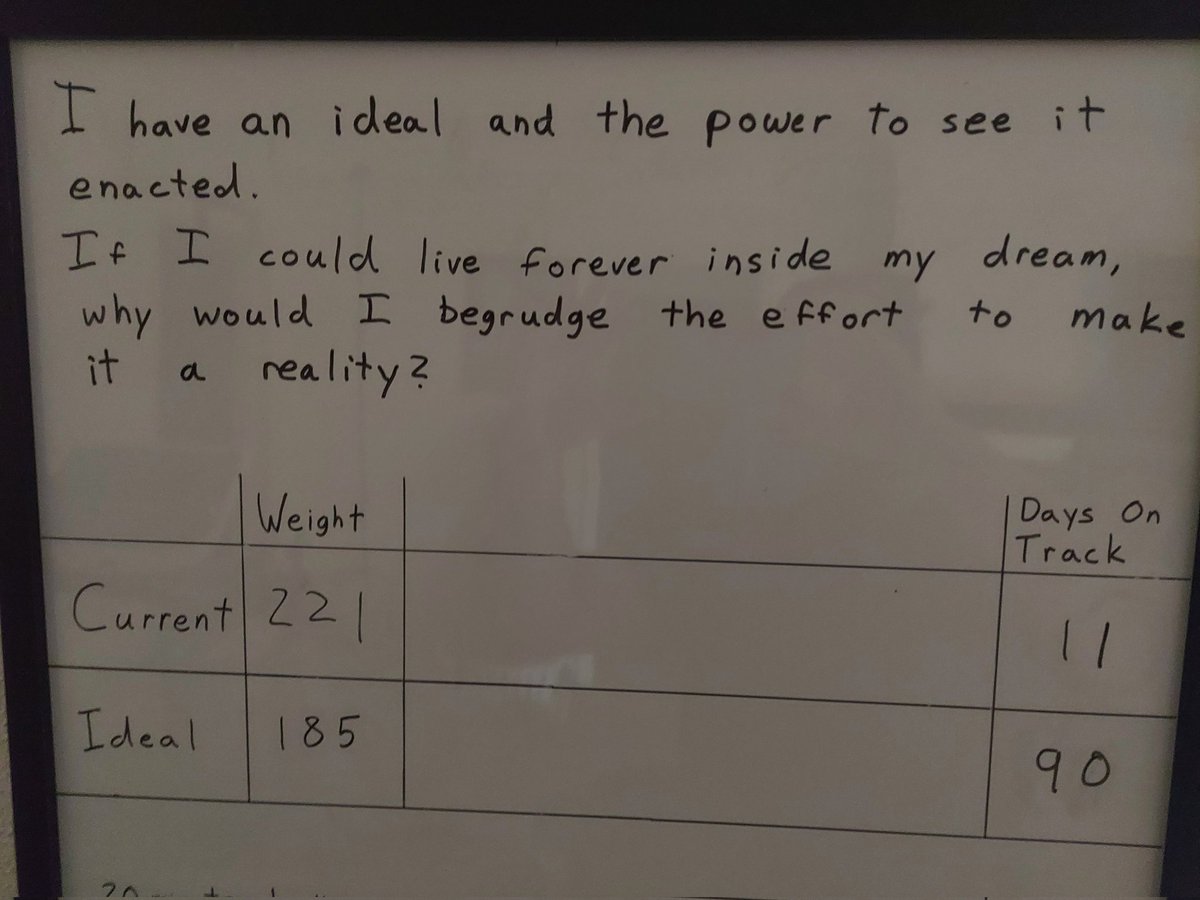 I have an ideal and the power to see it
enacted.
If I could live forever inside my dream,
why would I begrudge the effort to make
it a reality?
Weight Days On
Track
Current 221 11
Ideal 185 90